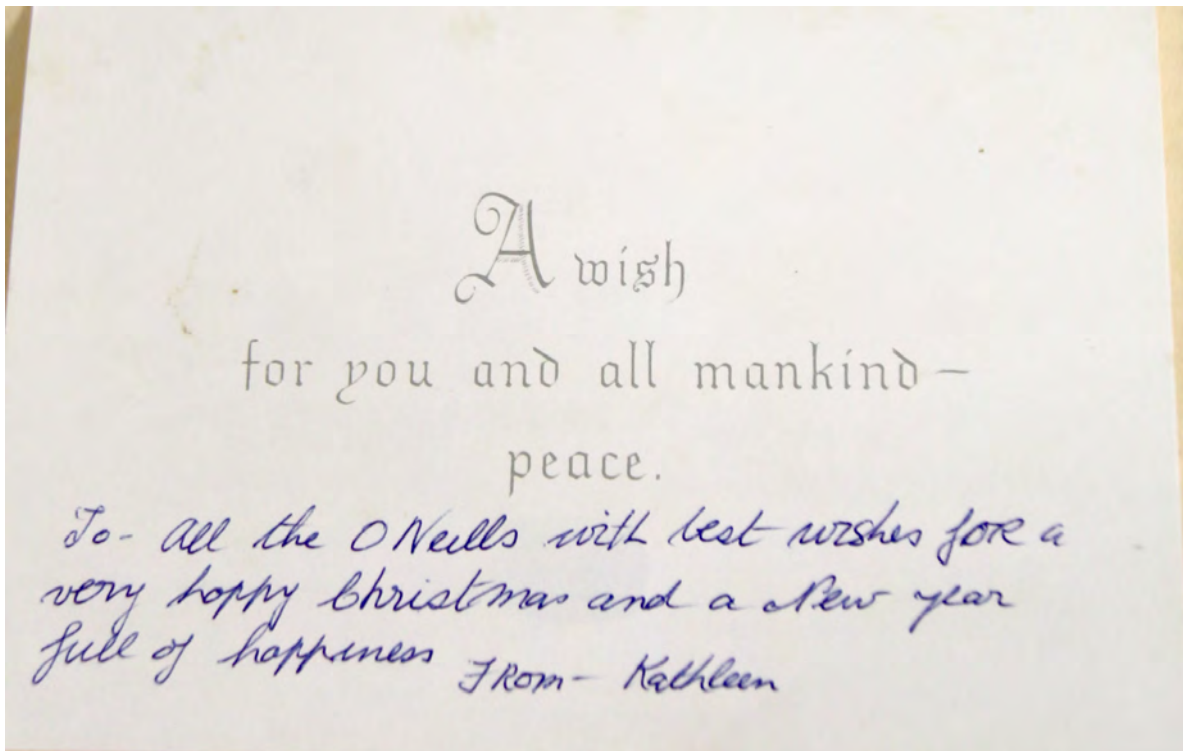 A wish
for you and all mankind —
peace.
To - All the O Neills with best wishes foR a
very happy Christmas and a New year
full of happiness
FRom - Kathleen